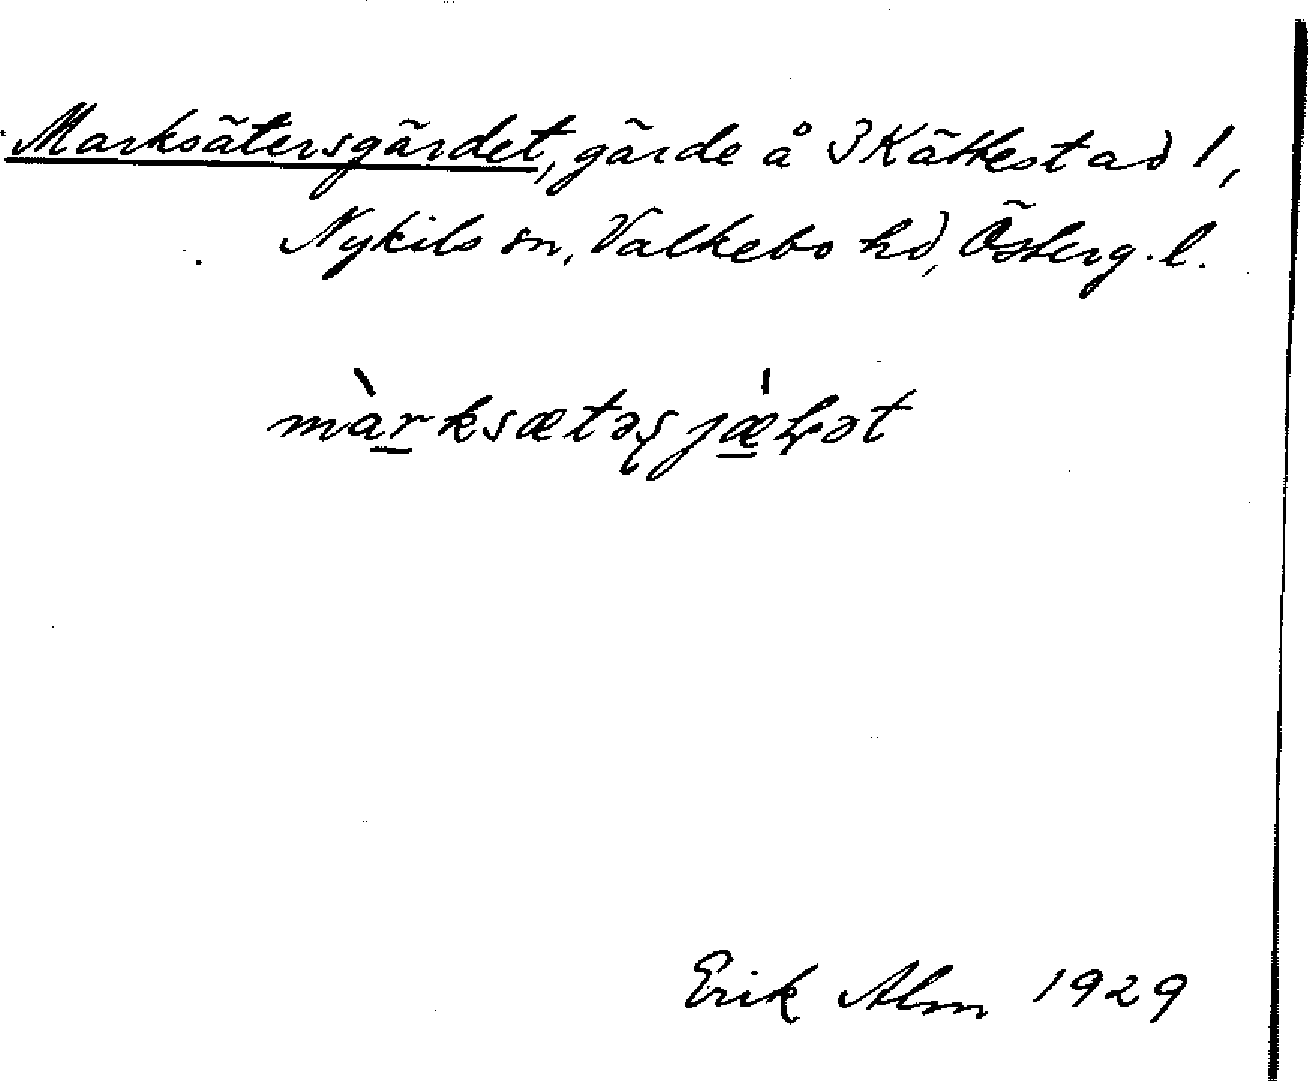 Marksätersgärdet, gärde å Kättestad 1,
Nykils sn, Valkebo hd, Österg. l.
Erik Alm 1929